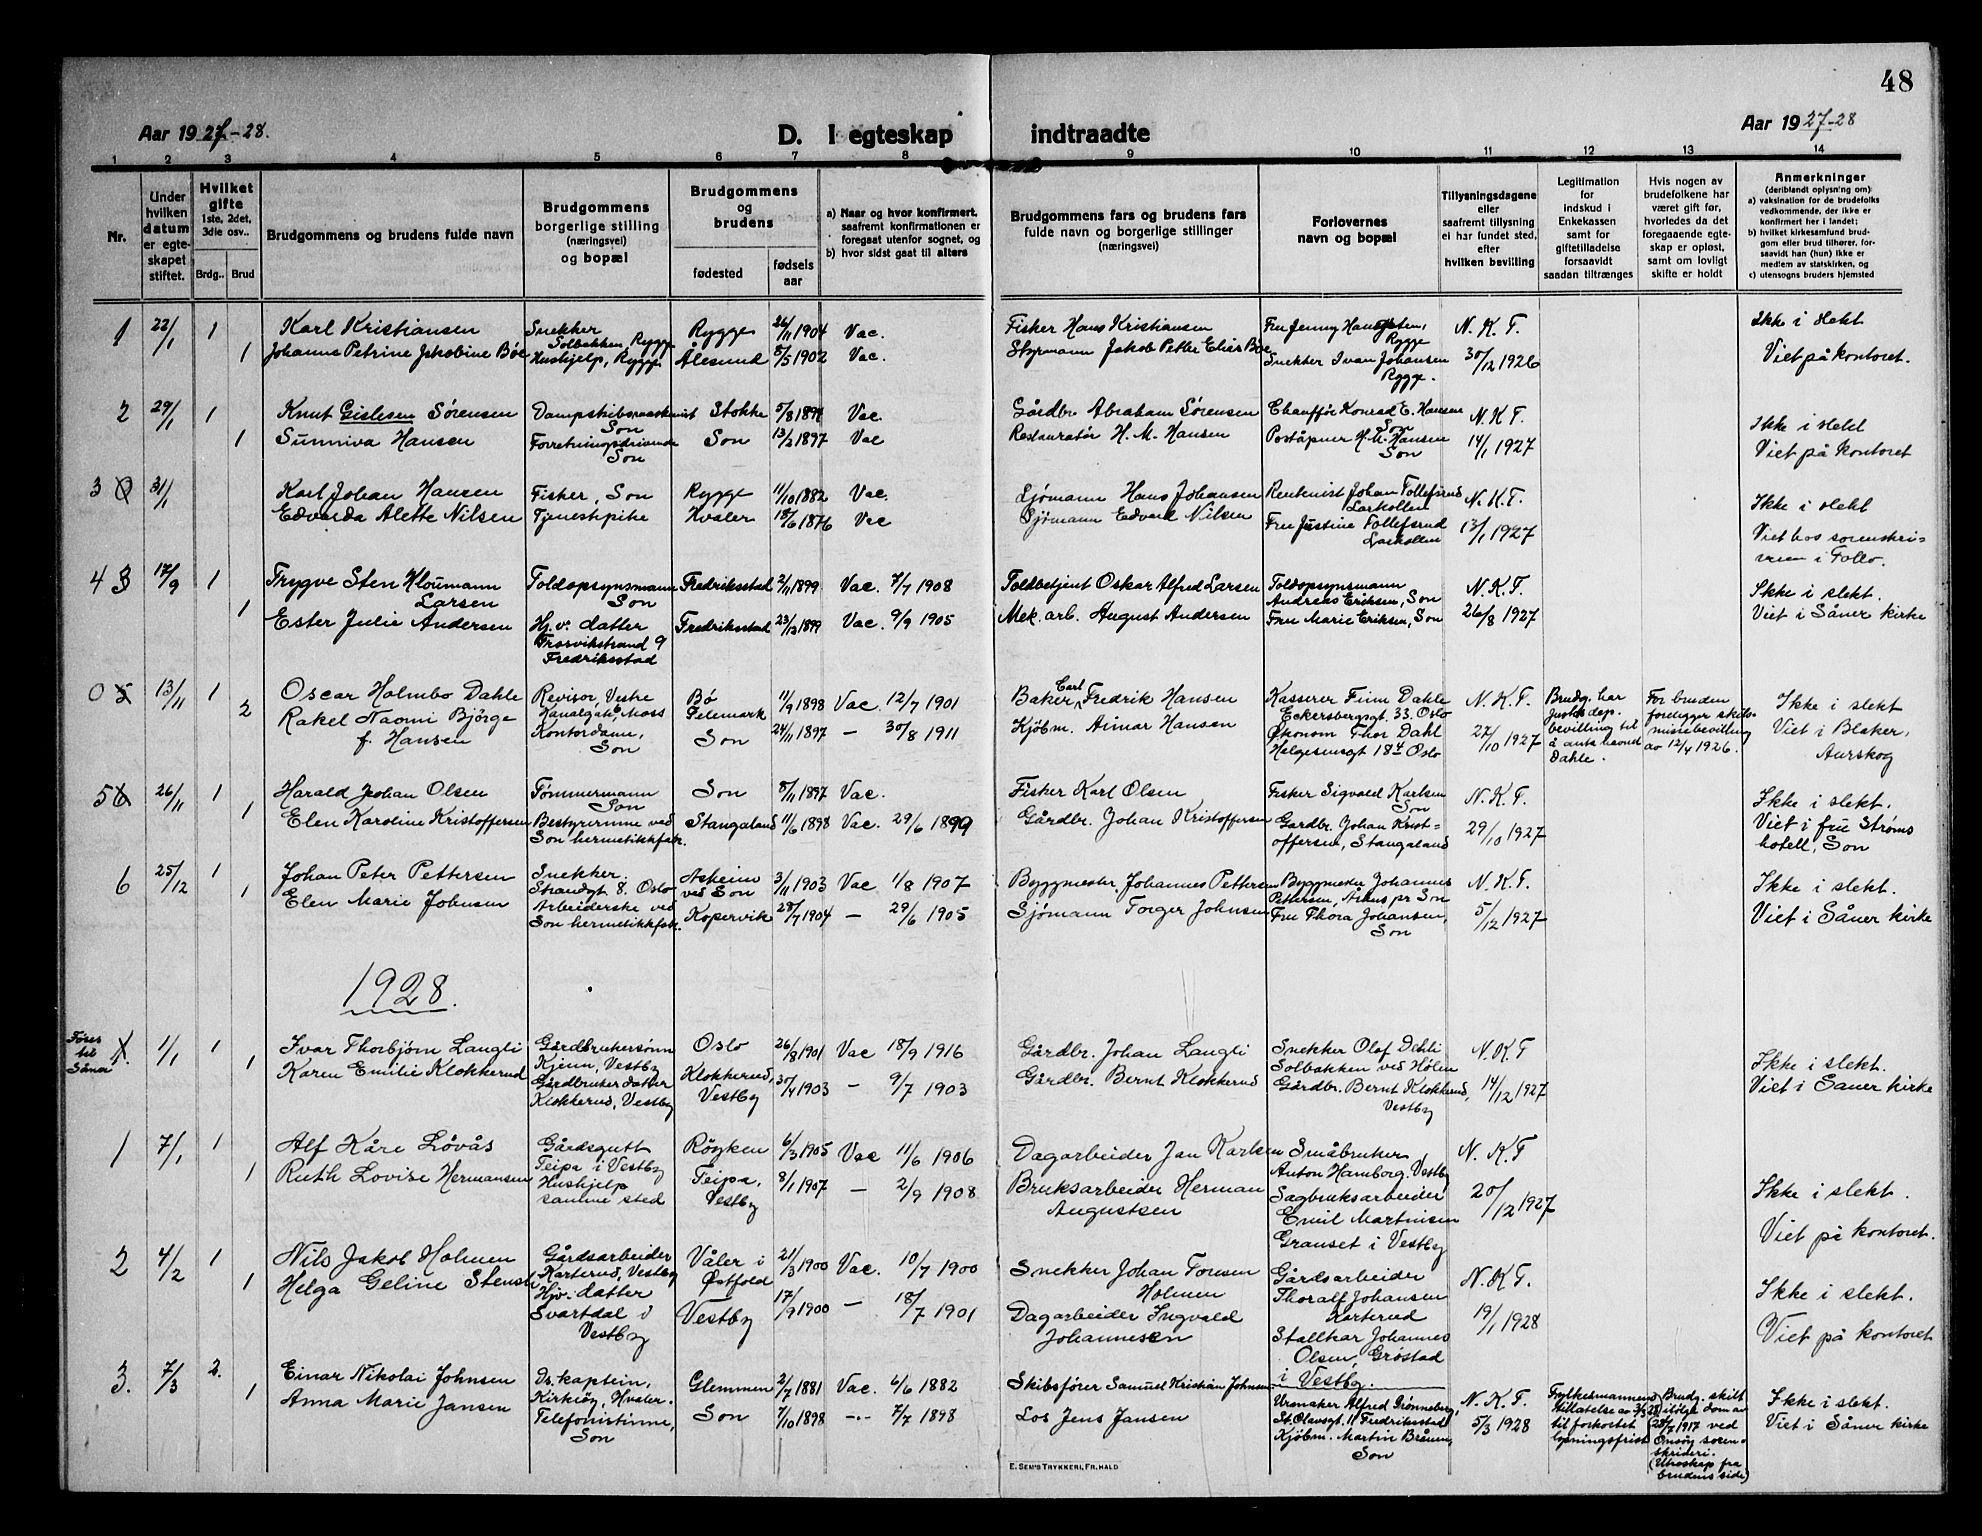 48
Aar 1927-28.
D. I egteskap indtraadte
Aar 1927-28
1 2 3 4 5 6 7 8 9 10 11 12 13 14
Nr.
Under hvilken datum er egteskapet stiftet.
Hvilket gifte 1ste, 2det, 3die osv..
Brdg.. Brud
Brudgommens og brudens fulde navn
Brudgommens borgerlige stilling (næringsvei) og bopæl
Brudgommens og brudens
fødested
fødselsaar
a) Naar og hvor konfirmert, saafremt konfirmationen er foregaat utenfor sognet, og
b) hvor sidst gaat til alters
Brudgommens fars og brudens fars fulde navn og borgerlige stillinger (næringsvei)
Forlovernes navn og bopæl
Tillysningsdagene eller saafremt tillysning ei har fundet sted, efter hvilken bevilling
Legitimation for indskud i Enkekassen samt for giftetilladelse forsaavidt saadan tiltrænges
Hvis nogen av brudefolkene har været gift før, hvorledes da det foregaaende egteskap er opløst, samt om lovligt skifte er holdt
Anmerkninger (deriblandt oplysning om):
a) vaksination for de brudefolks vedkommende, der ikke er konfirmert her i landet;
b) hvilket kirkesamfund brudgom eller brud tilhører, forsaavidt han (hun) ikke er medlem av statskirken, og
c) utensogns bruders hjemsted
1 22/1 1 Karl Kristiansen Snekker Solbakken, Rygge Rygge 26/11 1904 Vac. Fisker Hans Kristiansen Fru Jenny Rygge N. K. F. Ikke i slekt
1 Johanne Petrine Jakobine Bøe Hushjelp, Rygge Ålesund 5/5 1902 Vac. Styrmann Jakob Petter Elias Bøe Snekker Ivan Johansen Rygge. 30/12 1926 Viet på kontoret.
2 29/1 1 Knut Gislesen Sørensen Dampskibsmaskinist Son Stokke 5/8 Vac. Gårdbr. Abraham Sørensen Chauffør Konrad E. Hansen Son N. K. F. Ikke i slekt
1 Sunniva Hansen Forretningsdrivende Son Son 13/2 1897 Vac Restauratør H. M. Hansen Poståpner H. M. Hansen Son 14/1 1927 Viet på kontoret
3 0 31/1 Karl Johan Hansen Fisker, Son Rygge 11/10 1882 Vac. Sjømann Hans Johansen Rentenist Johan Tollefsrud Larkollen N. K. F. Ikke i slekt
Edvarda Alette Nilsen Tjenestpike Hvaler 18/6 1876 Vac Sjømann Edvard Nilsen Fru Justine Tollefsrud Larkollen 13/1 1927 Viet hos sorenskriveren i Follo.
4 3 17/9 1 Trygve Sten Larsen Toldopsynsmann Son Fredriksstad 2/11 1899 Vac. 7/7 1908 Toldbetjent Oskar Alfred Larsen Toldopsynsmann Andreas Eriksen, Son N. K. F. Ikke i slekt.
1 Ester Julie Andersen Hjv. datter Trosvikstrand 9 Fredriksstad Fredriksstad 23/12 1899 Vac. 9/9 1905 Mek. arb. August Andersen Fru Marie Eriksen, Son 26/8 1927 Viet i Såner kirke
0 5 13/11 1 Oscar Holmbo Dahle Revisor, Vestre Kanalgate 6, Moss Bø Telemark 11/9 1898 Vac. 12/7 1901 Baker, Carl Fredrik Hansen Kasserer Finn Dahle Eckersbergsgt. 33. Oslo N. K. F. Brudg. har Justisdep. bevilling til å anta navnet Dahle. For bruden foreligger skilsmissebevilling av 12/4 1926. Ikke i slekt
2 Rakel Naomi Bjørge f. Hansen Kontordame, Son Son 24/11 1897 - 30/8 1911 Kjøbm. Ainar Hansen Økonom Thor Dahl Helgesensgt 18 Oslo 27/10 1927 Viet i Blaker, Aurskog
5 6 26/11 1 Harald Johan Olsen Tømmermann Son Son 8/11 1897 Vac. Fisker Karl Olsen Fisker Sigvald Karlsen Son N. K. F. Ikke i slekt.
1 Elen Karoline Kristoffersen Bestyrerinne ved Son hermetikkfabr. Stangaland 11/6 1898 Vac. 29/6 1899 Gårdbr. Johan Kristoffersen Gårdbr. Johan Kristoffersen, Stangaland 29/10 1927 Viet i fru Strøms hotell, Son
6 25/12 1 Johan Peter Pettersen Snekker. Strandgt 8. Oslo Askeim ved Son 3/11 1903 Vac 1/8 1907 Byggmester Johannes Pettersen Byggmester Johannes Pettersen, pr Son N. K. F. Ikke i slekt.
1 Elen Marie Johnsen Arbeiderske ved Son hermetikkfabr. Kopervik 28/7 1904 - 29/6 1905 Sjømann Torger Johnsen Fru Thora Johansen, Son 5/12 1927 Viet i Såner kirke
1928.
Føres til Såner 1. 1/1 1 Ivar Thorbjørn Langli Gårdbrukersønn Kjenn, Vestby Oslo 26/8 1901 Vac 18/9 1916 Gårdbr. Johan Langli Snekker Olof Dehli Solbakken ved Hølen N. K. F Ikke i slekt.
1 Karen Emilie Klokkerud Gårdbrukerdatter Klokkerud, Vestby Klokkerud, Vestby 30/4 1903 - 9/7 1903 Gårdbr. Bernt Klokkerud Gårdbr. Bernt Klokkerud, Vestby 14/12 1927 Viet i Såner kirke
1 7/1 1 Alf Kåre Løvås Gårdsgutt Teipa i Vestby Røyken 6/3 1905 Vac 11/6 1906 Dagarbeider Jan Karlsen Småbruker Anton Hamborg. Vestby N. K. F
1 Ruth Lovise Hermansen Hushjelp samme sted Teipa, Vestby 8/1 1907 - 2/9 1908 Bruksarbeider Herman Augustsen Sagbruksarbeider Emil Martinsen Granset i Vestby 20/12 1927 Ikke i slekt. Viet på kontoret.
2 4/2 1 Nils Jakob Holmen Gårdsarbeider Karterud, Vestby Våler i Østfold 21/3 1900 Vac. 10/7 1900 Snekker Johan Toresen Holmen Gårdsarbeider Thoralf Johansen Karterud N. K. F. Ikke i slekt.
1 Helga Geline Hjv. datter Svartdal i Vestby Vestby 17/9 1900 - 18/7 1901 Dagarbeider Ingvald Johannesen Stallkar Johannes Olsen, Grøstad i Vestby. 19/1 1928 Viet på kontoret
3. 7/3 2. Einar Nikolai Johnsen Ds. kaptein, Kirkøy, Hvaler. Glemmen 2/7 1881 Vac. 4/6 1882 Skibsfører Samuel Kristian Johnsen Urmaker Alfred Grønneberg, St. Olavsgt. 11 Fredriksstad N. K. F. Fylkesmannens tillatelse av 3/3 28 til forkortet lysningsfrist Brudg. skilt ifølge dom av 28/7 1917 ved Onsøy sorenskriveri. (Utroskap fra brudens side) Ikke i slekt.
1 Anna Marie Jansen Telefonistinne, Son Son 7/10 1898 -..- 7/7 1898 Los Jens Jansen Kjøbm. Martin Bråum, Son 5/3 1928 Viet i Såner kirke
E. SEM'S TRYKKERI, FR.HALD